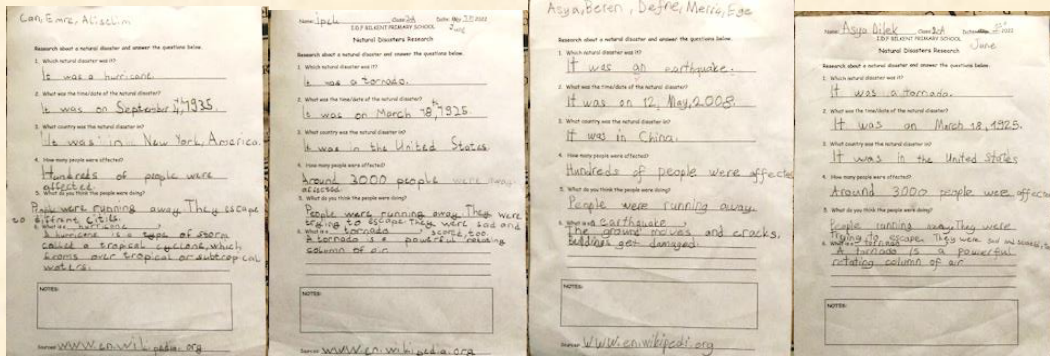 Can, Emre, Aliselim
Research about a natural disaster and answer the questions below.
1. Which natural disaster was it?
It was a hurricane.
2. What was the time/date of the natural disaster?
It was on September 4th, 1935.
3. What country was the natural disaster in?
It was in New York, America.
4. How many people were affected?
Hundreds of people were
affected.
5. What do you think the people were doing?
People were running away. They escape
to different cities.
6. What is a hurricane
A hurricane is a type of storm
called a tropical cyclone, which
forms over tropical or subtropical
waters.
NOTES:
Sources: www.en.wikipedia.org
Name: Ipek Class: 2A Date: May 2022
June
I.D.F BILKENT PRIMARY SCHOOL
Natural Disasters Research
Research about a natural disaster and answer the questions below.
1. Which natural disaster was it?
It was a tornado.
2. What was the time/date of the natural disaster?
It was on March 18th, 1925.
3. What country was the natural disaster in?
It was in the United States.
4. How many people were affected?
Around 3000 people were
affected.
5. What do you think the people were doing?
People were running away. They were
trying to escape. They were sad and
scared, too.
6. What is a tornado
A tornado is a powerful rotating
column of air.
NOTES:
Sources: www.en.wikipedia.org
Asya, Beren, Defne, Meriç, Ege
Research about a natural disaster and answer the questions below.
1. Which natural disaster was it?
It was an earthquake.
2. What was the time/date of the natural disaster?
It was on 12, May, 2008.
3. What country was the natural disaster in?
It was in China.
4. How many people were affected?
Hundreds of people were affected
5. What do you think the people were doing?
People were running away.
6. What is a earthquake.
The ground moves and cracks,
buildings get damaged.
NOTES:
Sources: www.en.wikipedi.org
Name: Asya Dilek Class: 2A Date: 2022
June
I.D.F BILKENT PRIMARY SCHOOL
Natural Disasters Research
Research about a natural disaster and answer the questions below.
1. Which natural disaster was it?
It was a tornado.
2. What was the time/date of the natural disaster?
It was on March 18, 1925.
3. What country was the natural disaster in?
It was in the United States
4. How many people were affected?
Around 3000 people were affected
5. What do you think the people were doing?
People running away. They were
trying to escape. They were sad and scared, too
6. What is a tornado
A tornado is a powerful
rotating column of air
NOTES: